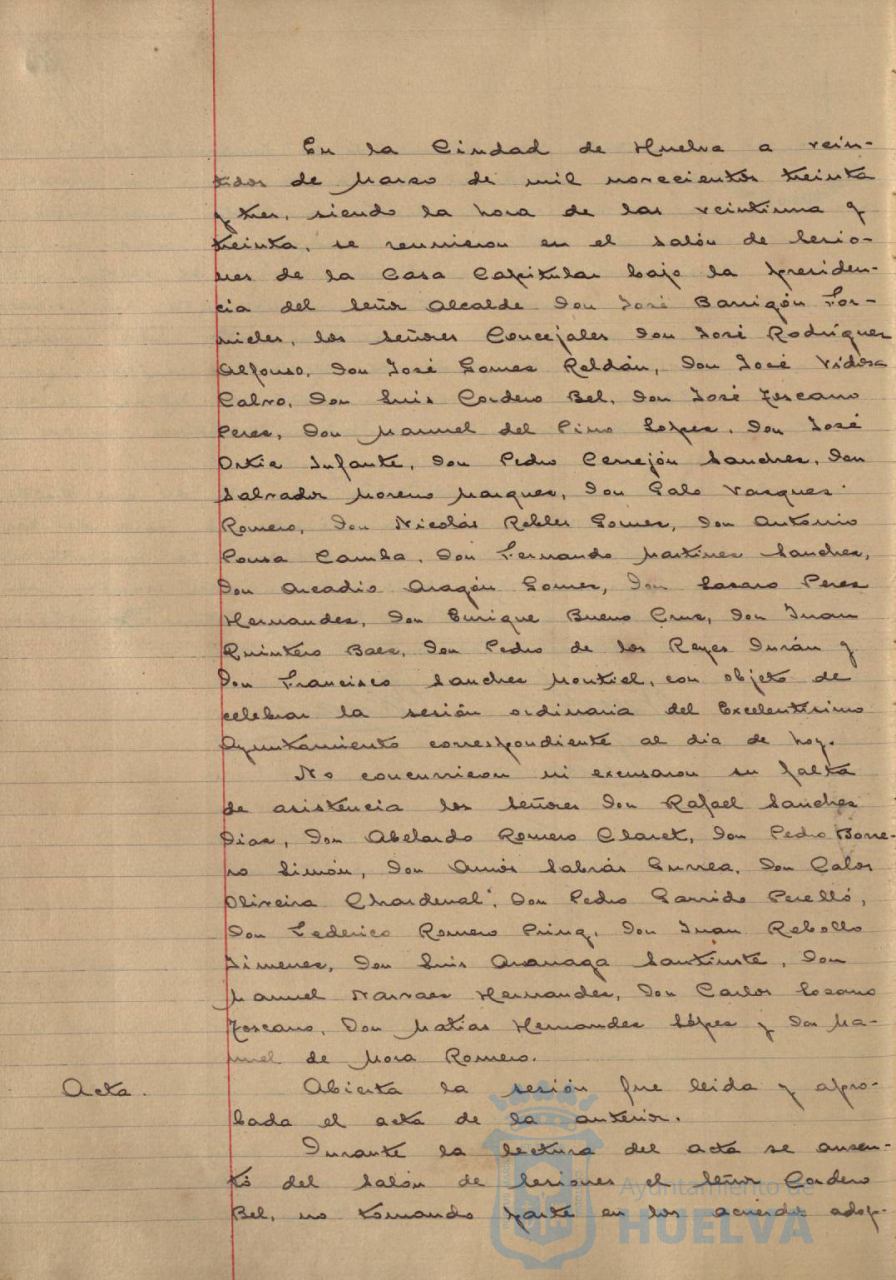 En la Ciudad de Huelva a vein-
tidos de Marzo de mil novecientos treinta
y tres, siendo la hora de las veintiuna y
treinta, se reunieron en el salón de Sesio-
nes de la Casa Capitular bajo la presiden-
cia del Señor Alcalde Don José Barrigón For-
nieles, los Señores Concejales Don José Rodríguez
Alfonso, Don José Gomez Roldán, Don José Vidosa
Calvo, Don Luis Cordero Bel, Don José Toscano
Perez, Don Manuel del Pino López, Don José
Ortiz Infante, Don Pedro Cerrejón Sanchez, Don
Salvador Moreno Marquez, Don Galo Vazquez
Romero, Don Nicolás Robles Gomez, Don Antonio
Pousa Camba, Don Fernando Martinez Sanchez,
Don Arcadio Aragón Gomez, Don Lazaro Perez
Hernandez, Don Enrique Bueno Cruz, Don Juan
Quintero Baez, Don Pedro de los Reyes Durán y
Don Francisco Sanchez Montiel, con objeto de
celebrar la sesión ordinaria del Excelentísimo
Ayuntamiento correspondiente al dia de hoy.
No concurrieron ni excusaron su falta
de asistencia los señores Don Rafael Sanchez
Diaz, Don Abelardo Romero Claret, Don Pedro Borre-
ro Limón, Don Amós Sabrás Gurrea, Don Calos
Oliveira Chardenal, Don Pedro Garrido Perelló,
Don Federico Romero Princ, Don Juan Rebollo
Jimenez, Don Luis Aranaga Santiuste, Don
Manuel Narvaez Hernandez, Don Carlos Lozano
Toscano, Don Matias Hernandez López y Don Ma-
nuel de Mora Romero.
Acta. Abierta la sesión fue leida y apro-
bada el acta de la anterior.
Durante la lectura del acta se ausen-
tó del salón de Sesiones el Señor Cordero
Bel, no tomando parte en los acuerdos adop-
Ayuntamiento de
HUELVA